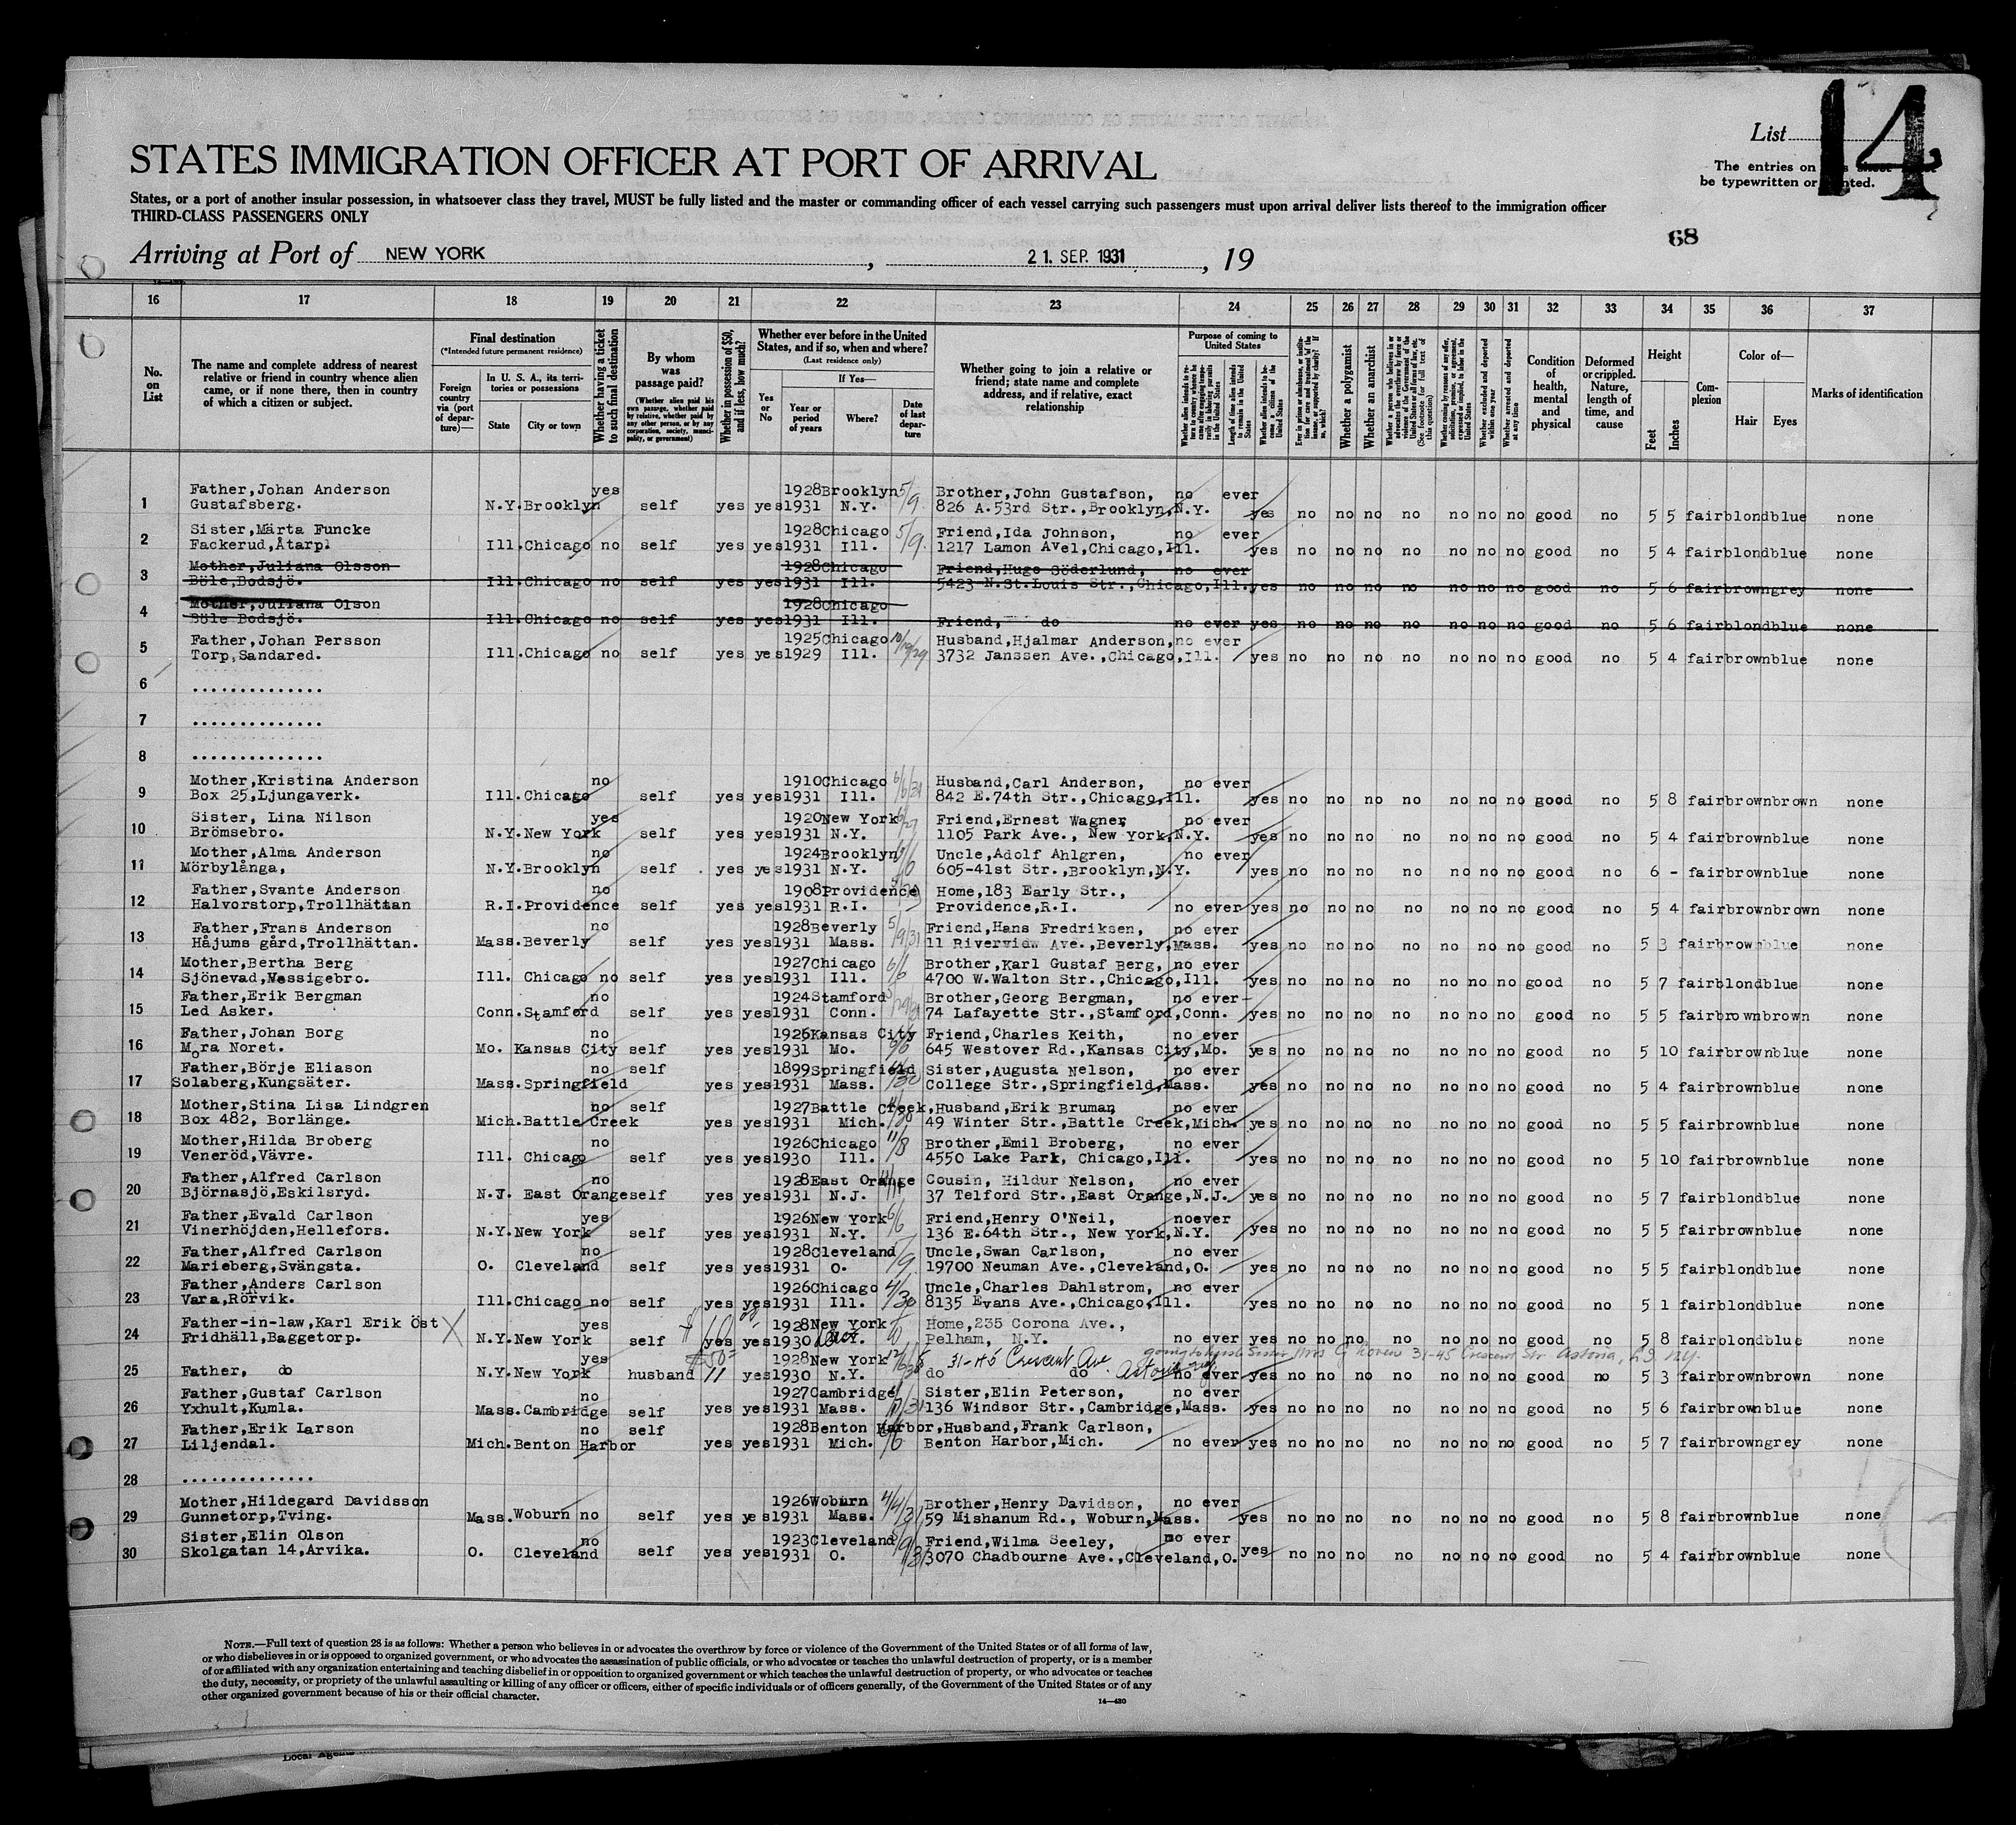 List 14
STATES IMMIGRATION OFFICER AT PORT OF ARRIVAL
The entries on
be typewritten or printed.
States, or a port of another insular possession, in whatsoever class they travel, MUST be fully listed and the master or commanding officer of each vessel carrying such passengers must upon arrival deliver lists thereof to the immigration officer
THIRD-CLASS PASSENGERS ONLY
68
Arriving at Port of NEW YORK, 21. SEP. 1931, 19
16 17 18 19 20 21 22 23 24 25 26 27 28 29 30 31 32 33 34 35 36 37
No. on List
The name and complete address of nearest relative or friend in country whence alien came, or if none there, then in country of which a citizen or subject.
Final destination
(*Intended future permanent residence)
Foreign country via (port of departure)—
In U. S. A., its territories or possessions
State
City or town
Whether having a ticket to such final destination
By whom was passage paid?
(Whether alien paid his own passage, whether paid by relative, whether paid by any other person, or by any corporation, society, municipality, or government)
Whether in possession of $50, and if less, how much?
Whether ever before in the United States, and if so, when and where?
(Last residence only)
Yes or No
If Yes—
Year or period of years
Where?
Date of last departure
Whether going to join a relative or friend; state name and complete address, and if relative, exact relationship
Purpose of coming to United States
Length of time alien intends to remain in the United States
Whether alien intends to become a citizen of the United States
Whether a polygamist
Whether an anarchist
Whether excluded and deported within one year
Whether arrested and deported at any time
Condition of health, mental and physical
Deformed or crippled. Nature, length of time, and cause
Height
Feet
Inches
Complexion
Color of—
Hair
Eyes
Marks of identification
Father,Johan Anderson yes 1928Brooklyn 5/9 Brother,John Gustafson, no ever
1 Gustafsberg. N.Y.Brooklyn self yes yes1931 N.Y. 826 A.53rd Str.,Brooklyn,N.Y. yes no no no no no no no good no 5 5 fairblondblue none
Sister,Märta Funcke 1928Chicago 5/9 Friend,Ida Johnson, no ever
2 Fackerud,Åtarp. Ill.Chicago no self yes yes1931 Ill. 1217 Lamon Avel,Chicago,Ill. yes no no no no no no no good no 5 4 fairblondblue none
Mother,Juliana Olsson 1928Chicago Friend,Hugo Söderlund, no ever
3 Böle,Bodsjö. Ill.Chicago no self yes yes1931 Ill. 5423 N.St.Louis Str.,Chicago,Ill.yes no no no no no no no good no 5 6 fairbrowngrey none
Mother,Juliana Olson 1928Chicago
4 Böle Bodsjö. Ill.Chicago no self yes yes1931 Ill. Friend, do no ever yes no no no no no no no good no 5 6 fairblondblue none
Father,Johan Persson 1925Chicago 10/19/29 Husband,Hjalmar Anderson,no ever
5 Torp,Sandared. Ill.Chicago no self yes yes1929 Ill. 3732 Janssen Ave.,Chicago,Ill. yes no no no no no no no good no 5 4 fairbrownblue none
6 ..............
7 ..............
8 ..............
Mother,Kristina Anderson no 1910Chicago 6/6/31 Husband,Carl Anderson, no ever
9 Box 25,Ljungaverk. Ill.Chicago self yes yes1931 Ill. 842 E.74th Str.,Chicago,Ill. yes no no no no no no no good no 5 8 fairbrownbrown none
Sister, Lina Nilson yes 1920New York Friend,Ernest Wagner, no ever
10 Brömsebro. N.Y.New York self yes yes1931 N.Y. 1105 Park Ave., New York,N.Y. yes no no no no no no no good no 5 4 fairbrownblue none
Mother,Alma Anderson no 1924Brooklyn Uncle,Adolf Ahlgren, no ever
11 Mörbylånga, N.Y.Brooklyn self yes yes1931 N.Y. 605-41st Str.,Brooklyn,N.Y. yes no no no no no no no good no 6 - fairbrownblue none
Father,Svante Anderson no 1908Providence Home,183 Early Str.,
12 Halvorstorp,Trollhättan R.I.Providence self yes yes1931 R.I. Providence,R.I. no ever yes no no no no no no no good no 5 4 fairbrownbrown none
Father,Frans Anderson no 1928Beverly 5/9/31 Friend,Hans Fredriksen, no ever
13 Håjums gård,Trollhättan. Mass.Beverly self yes yes1931 Mass. 11 Riverview Ave.,Beverly,Mass. yes no no no no no no no good no 5 3 fairbrownblue none
Mother,Bertha Berg 1927Chicago 6/6 Brother,Karl Gustaf Berg, no ever
14 Sjönevad,Vessigebro. Ill. Chicago no self yes yes1931 Ill. 4700 W.Walton Str.,Chicago,Ill. yes no no no no no no no good no 5 7 fairblondblue none
Father,Erik Bergman no 1924Stamford Brother,Georg Bergman, no ever
15 Led Asker. Conn.Stamford self yes yes1931 Conn. 74 Lafayette Str.,Stamford,Conn. yes no no no no no no no good no 5 5 fairbrownbrown none
Father,Johan Borg no 1926Kansas City Friend,Charles Keith, no ever
16 Mora Noret. Mo. Kansas City self yes yes1931 Mo. 6/6 645 Westover Rd.,Kansas City,Mo. yes no no no no no no no good no 5 10 fairbrownblue none
Father,Börje Eliason no self 1899Springfield Sister,Augusta Nelson, no ever
17 Solaberg,Kungsäter. Mass.Springfield yes yes1931 Mass. College Str.,Springfield,Mass. yes no no no no no no no good no 5 4 fairbrownblue none
Mother,Stina Lisa Lindgren no self 1927Battle Creek,Husband,Erik Bruman, no ever
18 Box 482, Borlänge. Mich.Battle Creek yes yes1931 Mich. 49 Winter Str.,Battle Creek,Mich. yes no no no no no no no good no 5 5 fairbrownblue none
Mother,Hilda Broberg no 1926Chicago 11/8 Brother,Emil Broberg, no ever
19 Veneröd,Vävre. Ill. Chicago self yes yes1930 Ill. 4550 Lake Park, Chicago,Ill. yes no no no no no no no good no 5 10 fairbrownblue none
Father,Alfred Carlson no 1928East Orange Cousin, Hildur Nelson, no ever
20 Björnasjö,Eskilsryd. N.J. East Orangeself yes yes1931 N.J. 37 Telford Str.,East Orange,N.J. yes no no no no no no no good no 5 7 fairblondblue none
Father,Evald Carlson yes 1926New York 6/6 Friend,Henry O'Neil, noever
21 Vinerhöjden,Hellefors. N.Y.New York self yes yes1931 N.Y. 136 E.64th Str., New York,N.Y. yes no no no no no no no good no 5 5 fairbrownblue none
Father,Alfred Carlson no 1928Cleveland 5/9 Uncle,Swan Carlson, no ever
22 Marieberg,Svängsta. O. Cleveland self yes yes1931 O. 19700 Neuman Ave.,Cleveland,O. yes no no no no no no no good no 5 5 fairblondblue none
Father,Anders Carlson 1926Chicago 4/30 Uncle,Charles Dahlstrom, no ever
23 Vara,Rörvik. Ill.Chicago no self yes yes1931 Ill. 8135 Evans Ave.,Chicago,Ill. yes no no no no no no no good no 5 1 fairblondblue none
Father-in-law,Karl Erik Öst yes 1928New York Home,235 Corona Ave.,
24 Fridhäll,Baggetorp. X N.Y.New York self yes yes1930 N.Y. Pelham, N.Y. no ever yes no no no no no no no good no 5 8 fairblondblue none
yes $50 1928New York 31-45 Crescent Ave Astoria going to husb sister Mrs 31-45 Crescent Str. Astoria, L.I. N.Y.
25 Father, do N.Y.New York husband 11 yes1930 N.Y. do do no ever yes no no no no no no no good no 5 3 fairbrownbrown none
Father,Gustaf Carlson no 1927Cambridge Sister,Elin Peterson, no ever
26 Yxhult,Kumla. Mass.Cambridge self yes yes1931 Mass. 136 Windsor Str.,Cambridge,Mass. yes no no no no no no no good no 5 6 fairbrownblue none
Father,Erik Larson no self 1928Benton Harbor,Husband,Frank Carlson,
27 Liljendal. Mich.Benton Harbor yes yes1931 Mich. Benton Harbor,Mich. no ever yes no no no no no no no good no 5 7 fairbrowngrey none
28 ..............
Mother,Hildegard Davidsson 1926Woburn 4/4/31 Brother,Henry Davidson, no ever
29 Gunnetorp,Tving. Mass.Woburn no self yes yes1931 Mass. 59 Mishanum Rd., Woburn,Mass. yes no no no no no no no good no 5 8 fairbrownblue none
Sister,Elin Olson no 1923Cleveland 5/9/31 Friend,Wilma Seeley, no ever
30 Skolgatan 14,Arvika. O. Cleveland self yes yes1931 O. 3070 Chadbourne Ave.,Cleveland,O. yes no no no no no no no good no 5 4 fairbrownblue none
NOTE.—Full text of question 28 is as follows: Whether a person who believes in or advocates the overthrow by force or violence of the Government of the United States or of all forms of law,
or who disbelieves in or is opposed to organized government, or who advocates the assassination of public officials, or who advocates or teaches the unlawful destruction of property, or is a member
of or affiliated with any organization entertaining and teaching disbelief in or opposition to organized government or which teaches the unlawful destruction of property, or who advocates or teaches
the duty, necessity, or propriety of the unlawful assaulting or killing of any officer or officers, either of specific individuals or of officers generally, of the Government of the United States or of any
other organized government because of his or their official character.
14—420
Local Agents